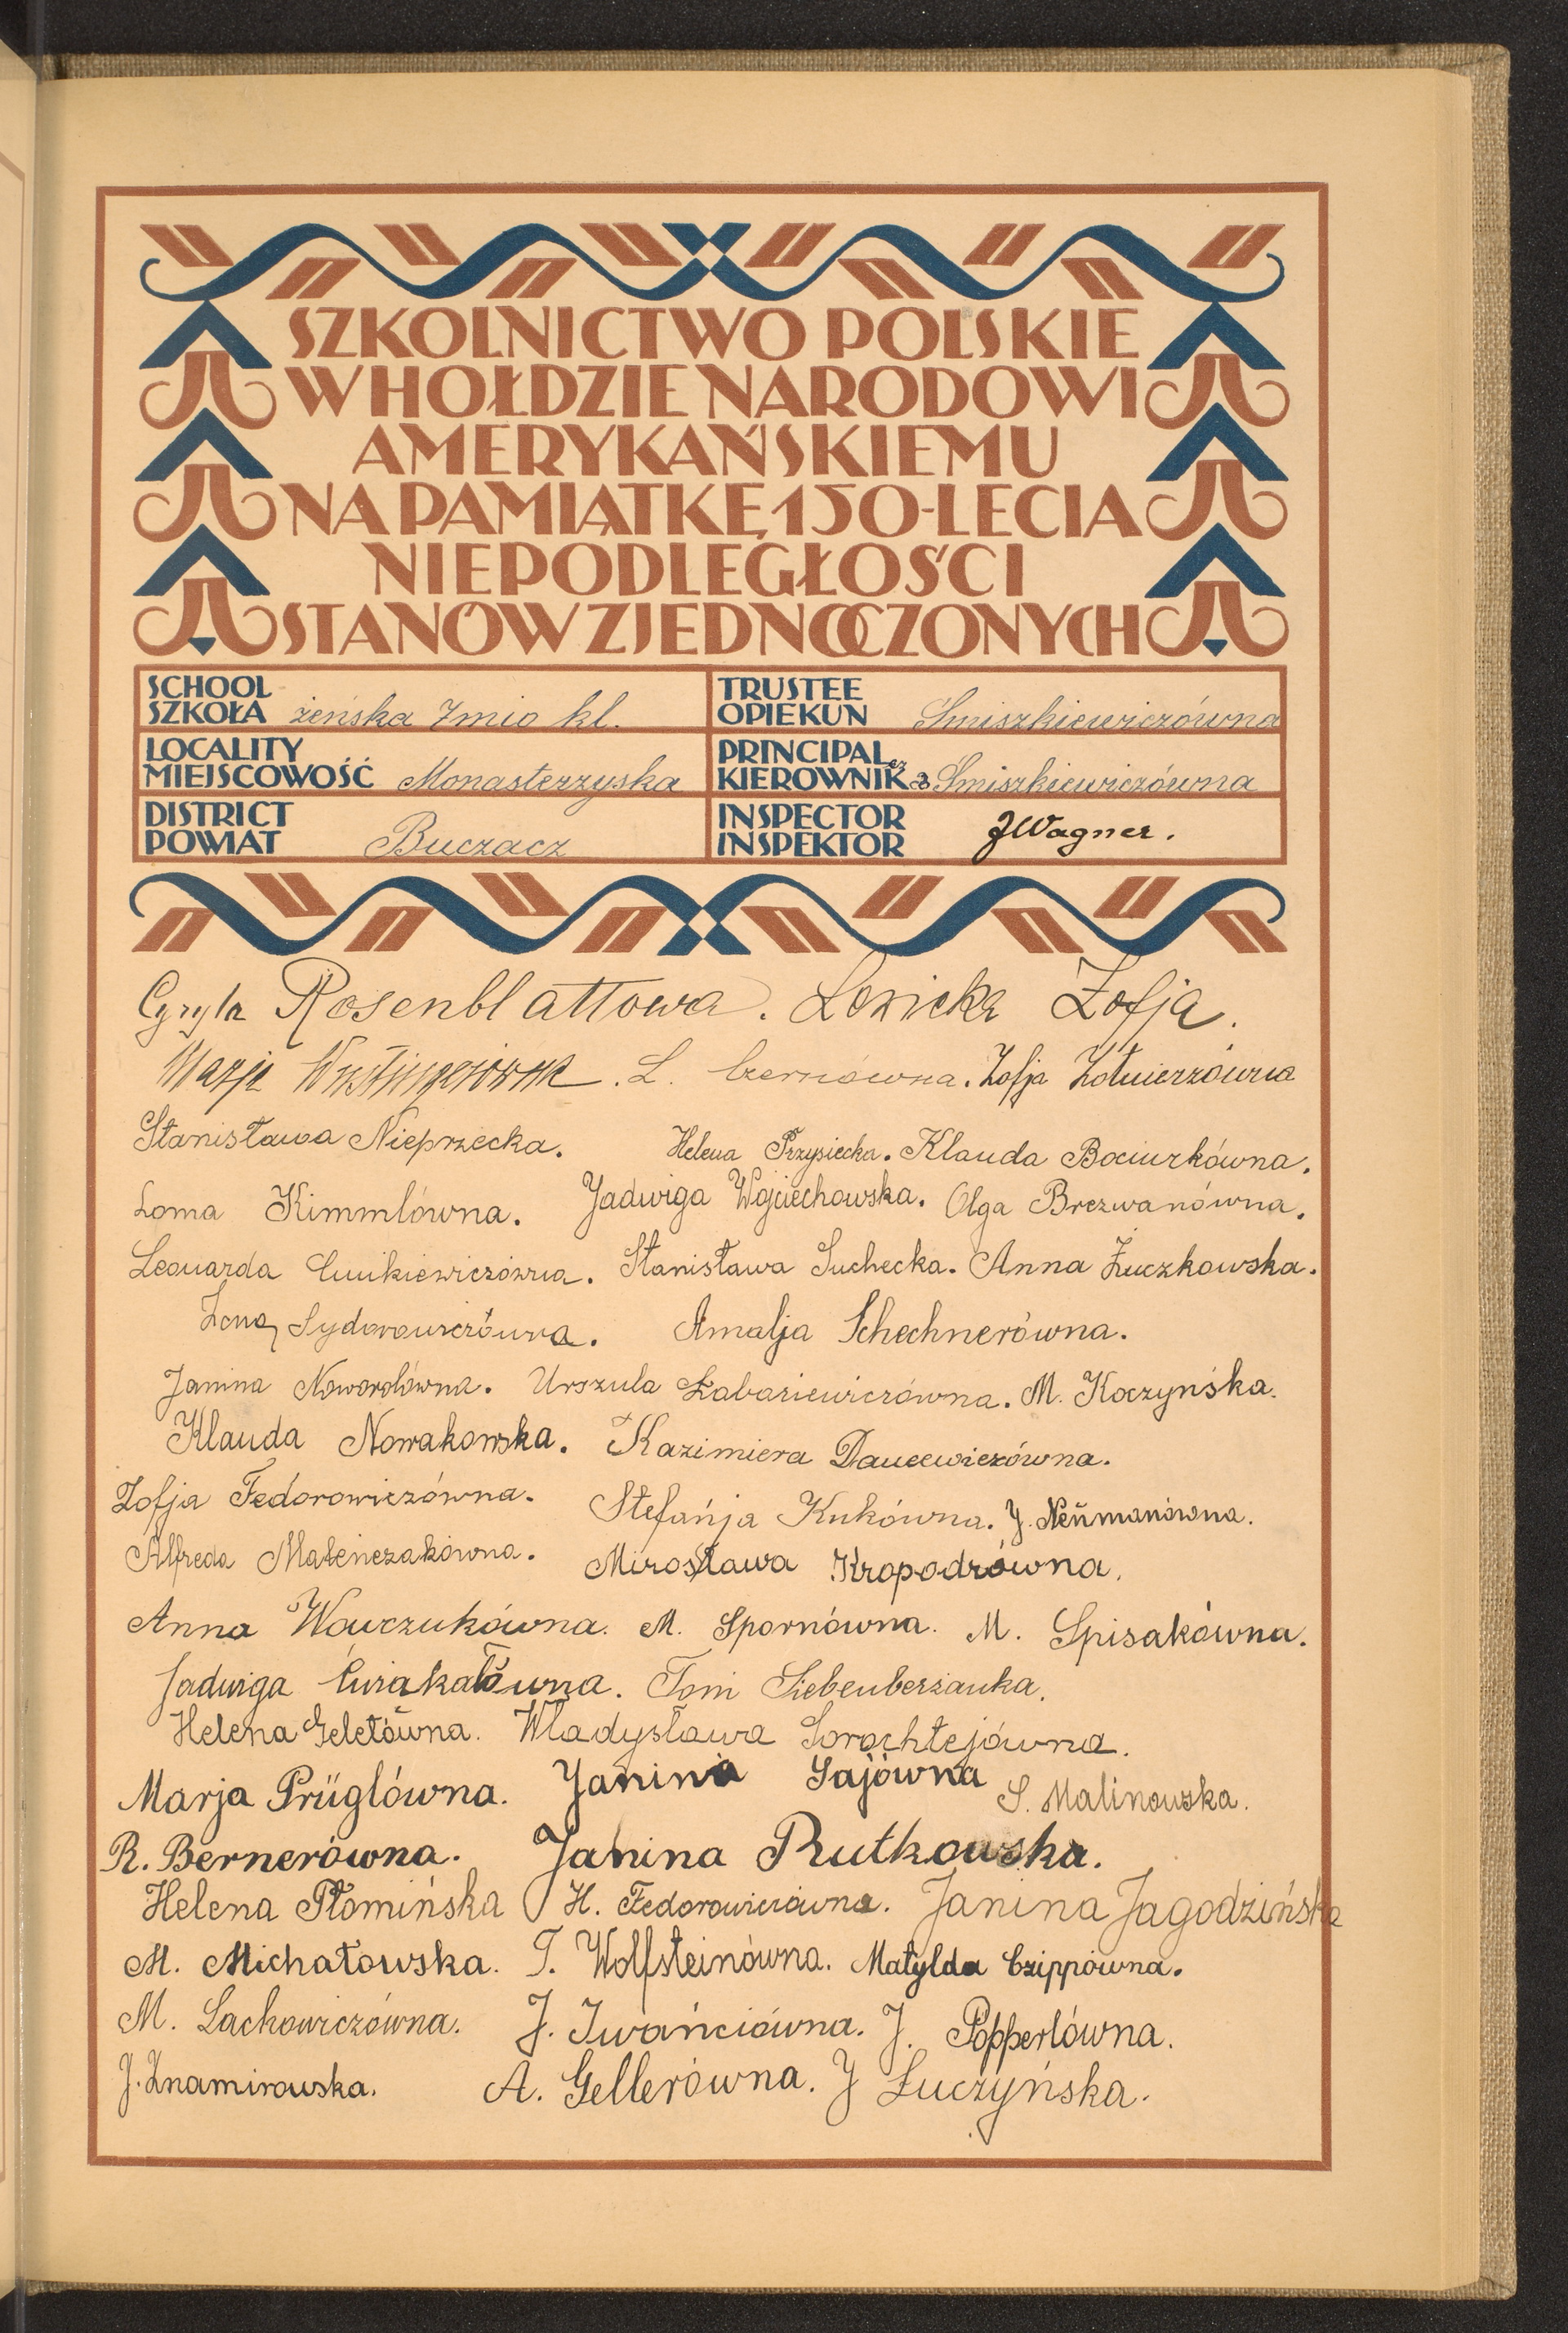 SZKOLNICTWO POLSKIE
W HOŁDZIE NARODOWI
AMERYKAŃSKIEMU
NA PAMIĄTKĘ 150-LECIA
NIEPODLEGŁOŚCI
STANÓW ZJEDNOCZONYCH
SCHOOL
SZKOŁA żeńska 7mio kl.
TRUSTEE
OPIEKUN Smiszkiewiczówna
LOCALITY
MIEJSCOWOŚĆ Monasterzyska
PRINCIPAL
KIEROWNIK Smiszkiewiczówna
DISTRICT
POWIAT Buczacz
INSPECTOR
INSPEKTOR JWagner.
Rosenblattowa. Zofja.
Marja L. Czernówna. Zofja Żołnierzówna
Stanisława Nieprzecka. Helena Przysiecka. Klauda Bociurkówna.
Loma Kimmlówna. Jadwiga Wojciechowska. Olga Brezwanówna.
Leonarda Ćwikiewiczówna. Stanisława Suchecka. Anna Żuczkowska.
Sydorowiczówna. Amalja Schechnerówna.
Janina Noworolówna. Urszula M. Koczyńska.
Klauda Nowakowska. Kazimiera Daucewiczówna.
Zofja Fedorowiczówna. Stefańja Kukówna. J. Neümanówna.
Alfreda Mateńczakówna. Mirosława Kropodrówna.
Anna Wawczukówna. M. Spornówna. M. Spisakówna.
Jadwiga Ćwiakałówna. Toni Siebenberżanka.
Helena Geletówna. Władysława Sorochtejówna.
Marja Prüglówna. Janina Gajówna S. Malinowska.
R. Bernerówna. Janina Rutkowska.
Helena Płomińska H. Fedorowiczówna. Janina Jagodzińska
M. Michałowska. T. Wolfsteinówna. Matylda Czippówna.
M. Lackowiczówna. J. Iwańciówna. J. Popperlówna.
J. Znamirowska. A. Gellerówna. J Łuczyńska.